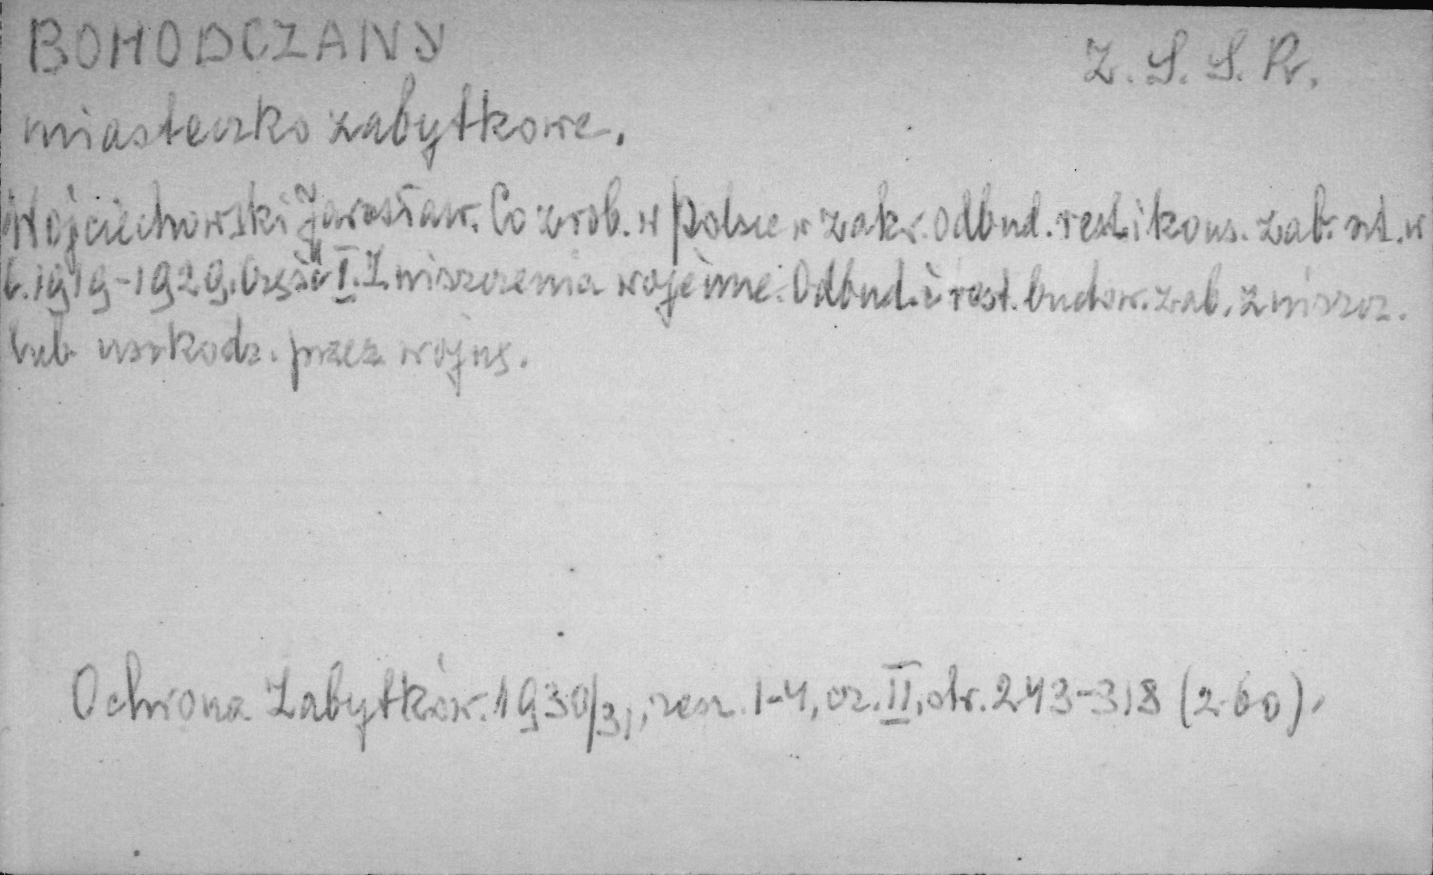 BOHODCZANY
Z.S.S.R.
miasteczko zabytkowe.
Wojciechowski Jarosław. Co zrob. w Polsce w zakr. odbud. rest. i kons. zab. szt. w
l. 1919-1929. Część I. Zniszczenia wojenne. Odbud. i rest. budow. zab. zniszcz.
lub uszkodz. przez wojnę.
Ochrona Zabytków. 1930/31, zesz. 1-4, cz. II, str. 243-318 (260).